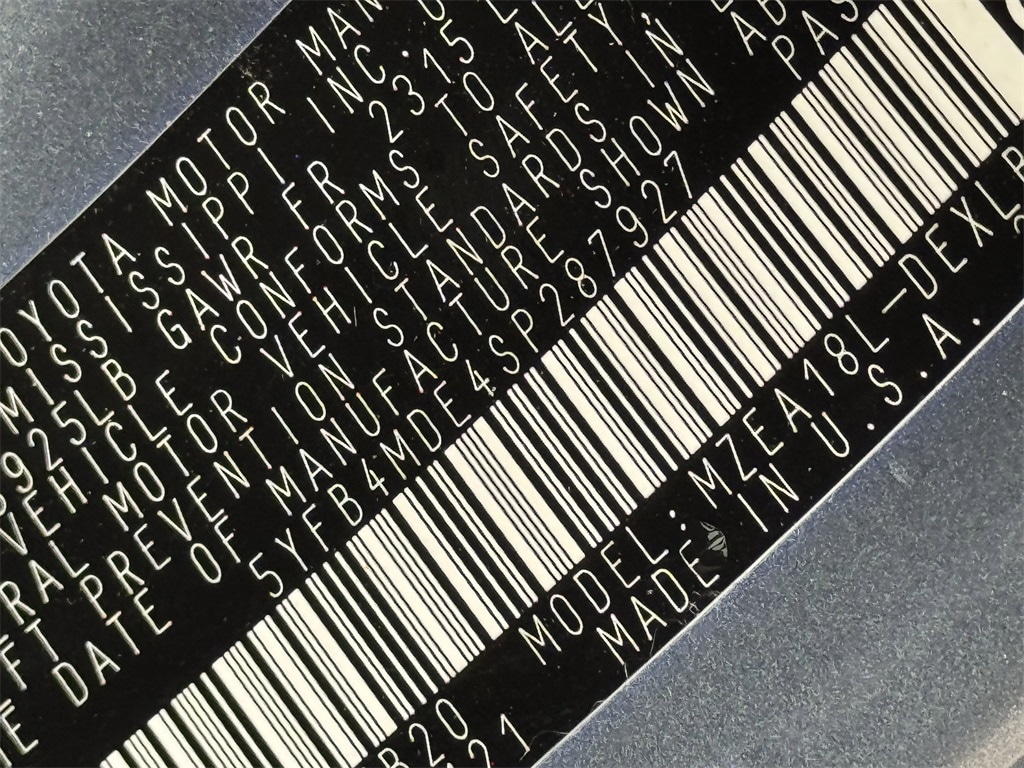 OYOTA MOTOR MAN
MISSISSIPPI INC.
925LB GAWR FR 2315 L
VEHICLE CONFORMS TO ALL
RAL MOTOR VEHICLE SAFETY
FT PREVENTION STANDARDS IN
E DATE OF MANUFACTURE SHOWN AB
5YFB4MDE4SP287927 PAS
R20 MODEL: MZEA18L-DEXL
21 MADE IN U.S.A.